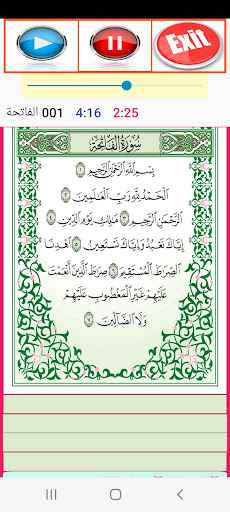 Exit
الفاتحة 001 4:16 2:25
سُورَةُ الفَاتِحَةِ
بِسْمِ اللَّهِ الرَّحْمَٰنِ الرَّحِيمِ ١
الْحَمْدُ لِلَّهِ رَبِّ الْعَالَمِينَ ٢
الرَّحْمَٰنِ الرَّحِيمِ ٣ مَالِكِ يَوْمِ الدِّينِ ٤
إِيَّاكَ نَعْبُدُ وَإِيَّاكَ نَسْتَعِينُ ٥ اهْدِنَا
الصِّرَاطَ الْمُسْتَقِيمَ ٦ صِرَاطَ الَّذِينَ أَنْعَمْتَ
عَلَيْهِمْ غَيْرِ الْمَغْضُوبِ عَلَيْهِمْ
وَلَا الضَّالِّينَ ٧